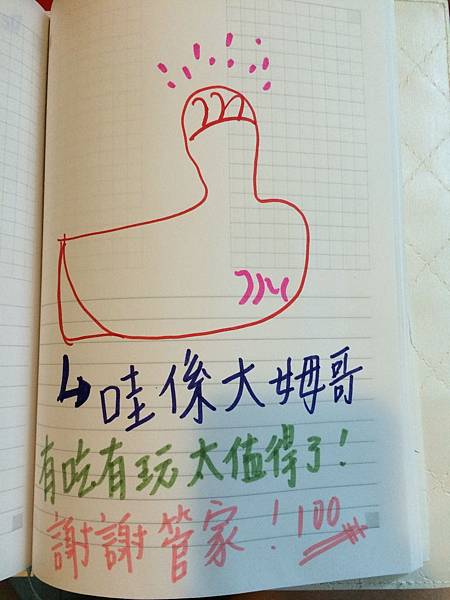 ↳ 哇係大姆哥
有吃有玩太值得了!
謝謝管家!100